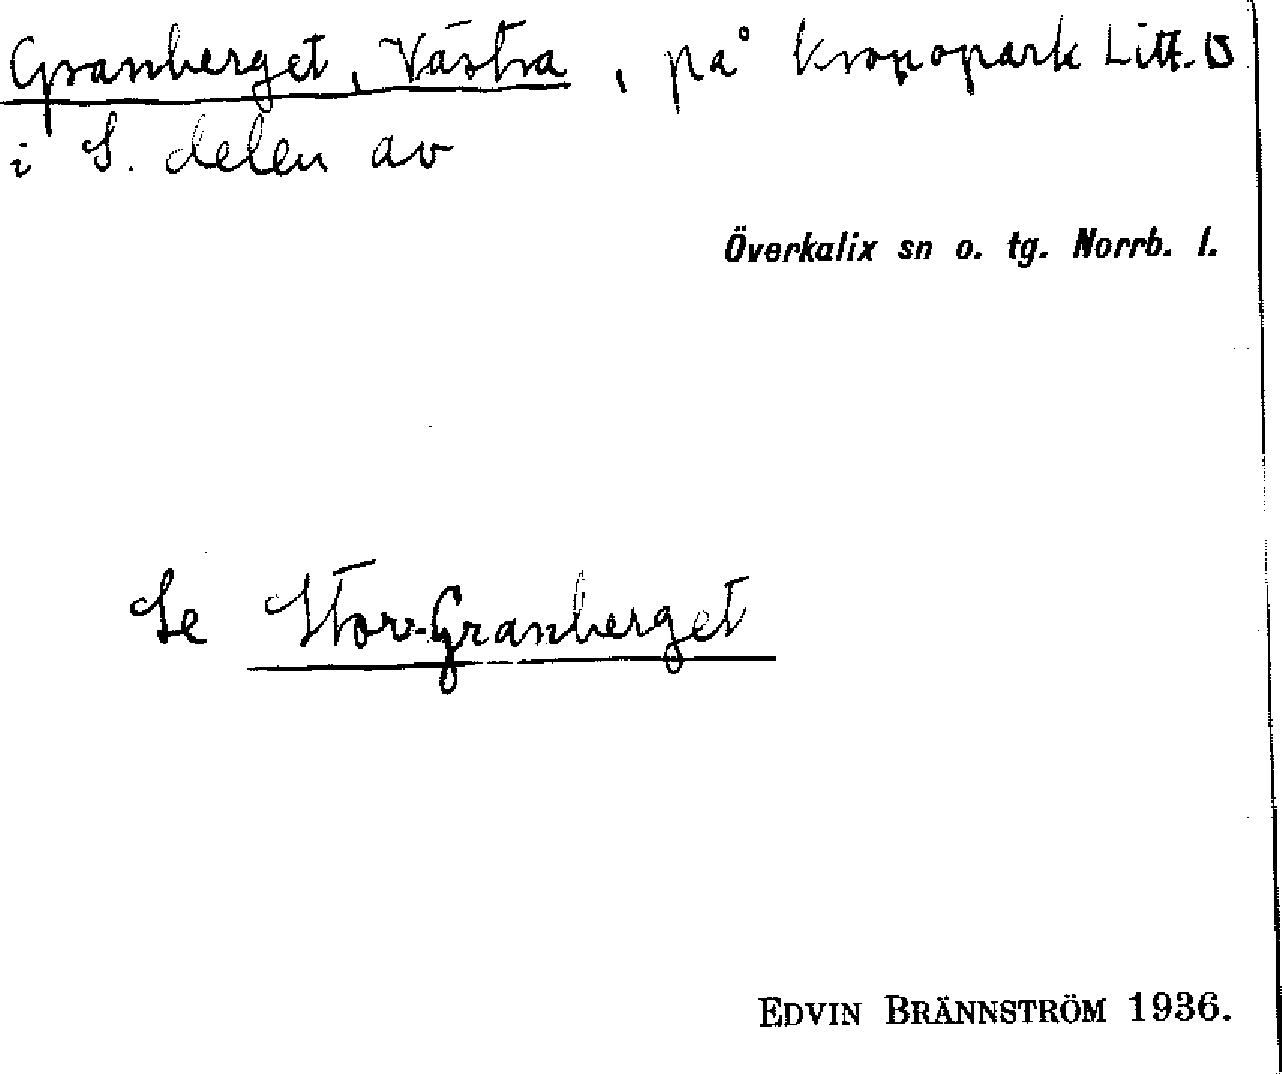 Granberget, Västra, på kronopark Litt. B
i S. delen av
Överkalix sn o. tg. Norrb. l.
Se Stor-Granberget
EDVIN BRÄNNSTRÖM 1936.